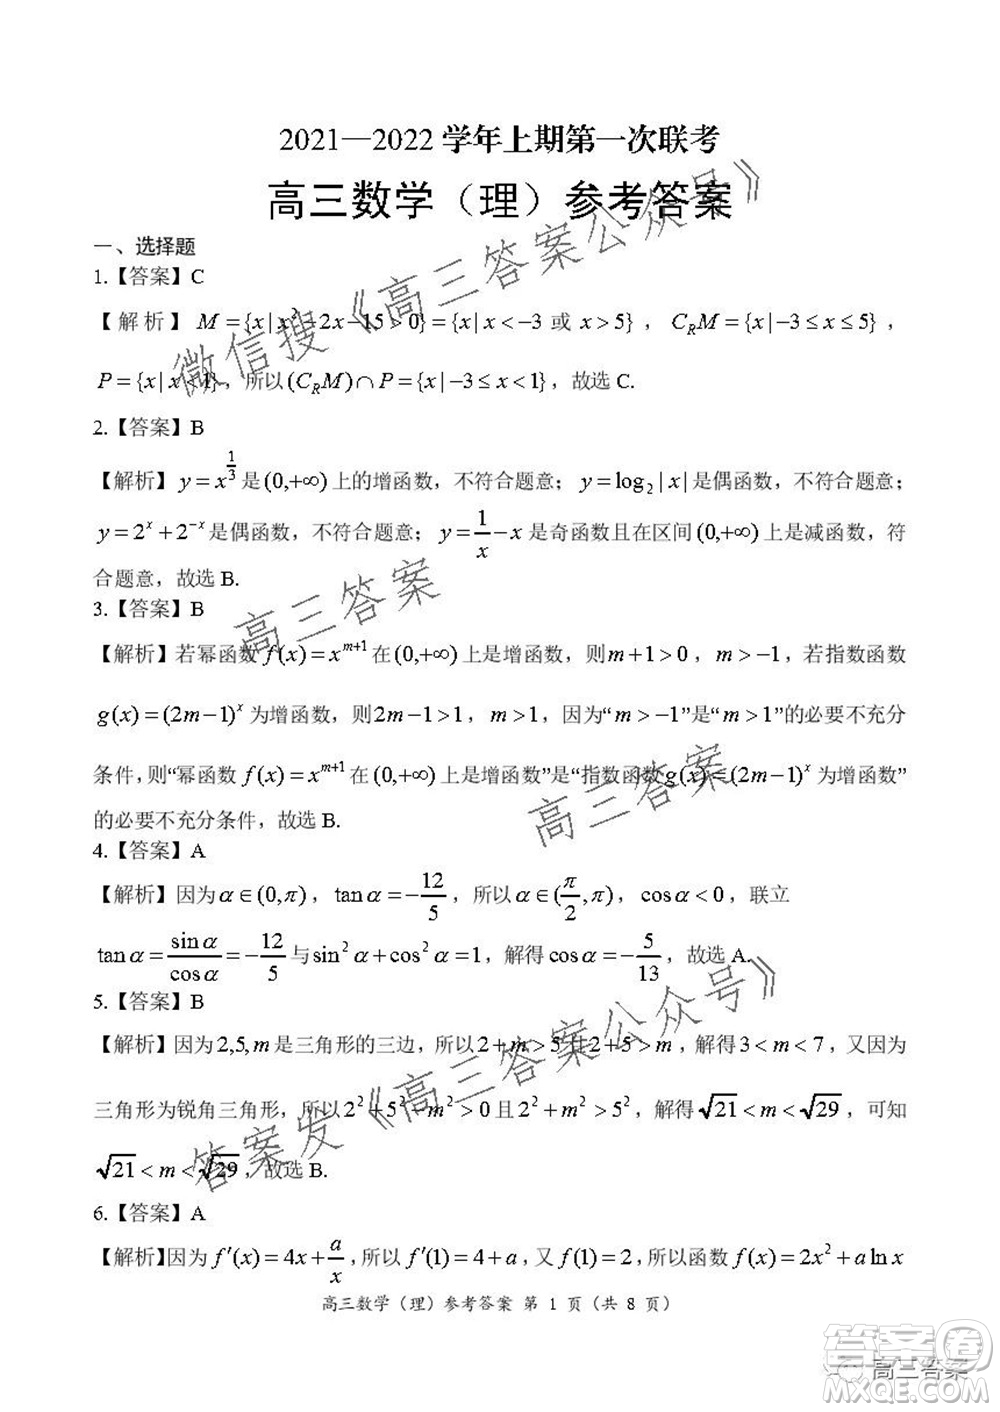 2021—2022 学年上期第一次联考
高三数学（理）参考答案
一、选择题
1.【答案】C
【解析】M={x|x²-2x-15>0}={x|x<-3 或 x>5}，C_R M={x|-3≤x≤5}，
P={x|x<1}，所以(C_R M)∩P={x|-3≤x<1}，故选 C.
2.【答案】B
【解析】y=x^{1/3}是(0,+∞)上的增函数，不符合题意；y=log₂|x|是偶函数，不符合题意；
y=2^x+2^{-x}是偶函数，不符合题意；y=1/x-x 是奇函数且在区间(0,+∞)上是减函数，符
合题意，故选 B.
3.【答案】B
【解析】若幂函数 f(x)=x^{m+1}在(0,+∞)上是增函数，则m+1>0，m>-1，若指数函数
g(x)=(2m-1)^x 为增函数，则2m-1>1，m>1，因为“m>-1”是“m>1”的必要不充分
条件,则“幂函数 f(x)=x^{m+1}在(0,+∞)上是增函数”是“指数函数g(x)=(2m-1)^x 为增函数”
的必要不充分条件，故选 B.
4.【答案】A
【解析】因为α∈(0,π)，tanα=-12/5，所以α∈(π/2,π)，cosα<0，联立
tanα=sinα/cosα=-12/5 与sin²α+cos²α=1，解得cosα=-5/13，故选 A.
5.【答案】B
【解析】因为2,5,m是三角形的三边，所以2+m>5且2+5>m，解得3<m<7，又因为
三角形为锐角三角形，所以2²+5²-m²>0且2²+m²>5²，解得√21<m<√29，可知
√21<m<√29，故选 B.
6.【答案】A
【解析】因为f′(x)=4x+a/x,所以f′(1)=4+a，又f(1)=2，所以函数f(x)=2x²+alnx
高三数学（理）参考答案 第 1 页（共 8 页）
微信搜《高三答案公众号》
高三答案
高三答案
答案发《高三答案公众号》
高三答案
答案卷
MXQE.COM